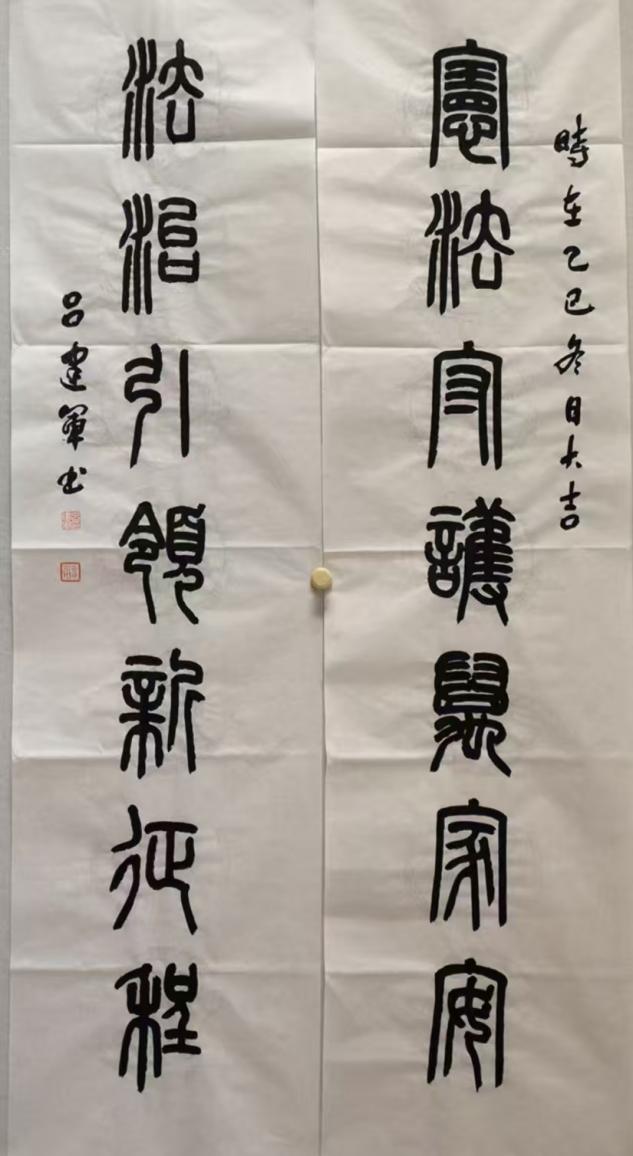 時在乙巳冬日大吉
憲法守護萬家安
法治引領新征程
吕建軍书